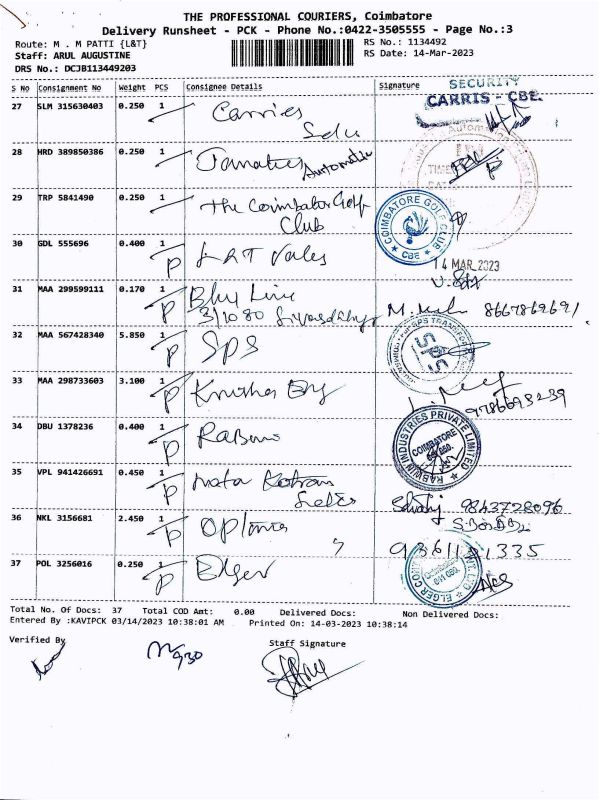 THE PROFESSIONAL COURIERS, Coimbatore
Delivery Runsheet - PCK - Phone No.:0422-3505555 - Page No.:3
Route: M . M PATTI {L&T}
RS No.: 1134492
Staff: ARUL AUGUSTINE
RS Date: 14-Mar-2023
DRS No.: DCJB113449203
S No Consignment No Weight PCS Consignee Details Signature
SECURITY
CARRIS - CBE.
27 SLM 315630403 0.250 1 Carries
28 HRD 389850386 0.250 1 Automatic
29 TRP 5841490 0.250 1 The Coimbatore Golf
Club
COIMBATORE GOLF CLUB
CBE
30 GDL 555696 0.400 1 P L&T Valves
14 MAR 2023
31 MAA 299599111 0.170 1 P Blue Line
3/1080
8667869691
32 MAA 567428340 5.850 1 P SPS
SPS
33 MAA 298733603 3.100 1 P Krishna Eng
9786693239
34 DBU 1378236 0.400 1 P
RABWIN INDUSTRIES PRIVATE LIMITED
COIMBATORE
641 050.
35 VPL 941426691 0.450 1 P
9843728096
36 NKL 3156681 2.450 1 P
9361121335
37 POL 3256016 0.250 1 P Elger
Total No. Of Docs: 37 Total COD Amt: 0.00 Delivered Docs: Non Delivered Docs:
Entered By :KAVIPCK 03/14/2023 10:38:01 AM Printed On: 14-03-2023 10:38:14
Verified By
Staff Signature